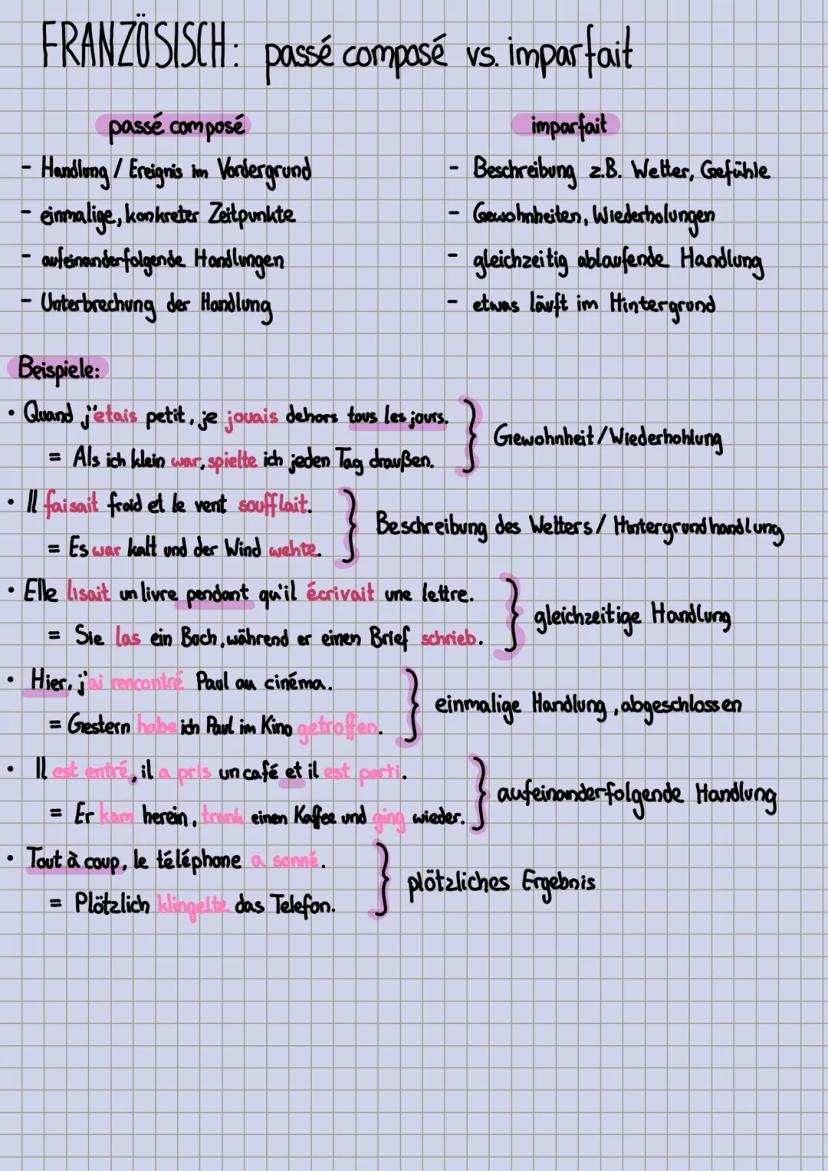 FRANZÖSISCH: passé composé vs. imparfait
passé composé
- Handlung / Ereignis im Vordergrund
- einmalige, konkreter Zeitpunkte
- aufeinanderfolgende Handlungen
- Unterbrechung der Handlung
imparfait
- Beschreibung z.B. Wetter, Gefühle
- Gewohnheiten, Wiederholungen
- gleichzeitig ablaufende Handlung
- etwas läuft im Hintergrund
Beispiele:
• Quand j'etais petit, je jouais dehors tous les jours.
= Als ich klein war, spielte ich jeden Tag draußen.
Gewohnheit/Wiederhohlung
• Il faisait froid et le vent soufflait.
= Es war kalt und der Wind wehte.
Beschreibung des Wetters / Hintergrundhandlung
• Elle lisait un livre pendant qu'il écrivait une lettre.
= Sie las ein Buch, während er einen Brief schrieb.
gleichzeitige Handlung
• Hier, j'ai rencontré Paul au cinéma.
= Gestern habe ich Paul im Kino getroffen.
einmalige Handlung, abgeschlossen
• Il est entré, il a pris un café et il est parti.
= Er kam herein, trank einen Kaffee und ging wieder.
aufeinanderfolgende Handlung
• Tout à coup, le téléphone a sonné.
= Plötzlich klingelte das Telefon.
plötzliches Ergebnis